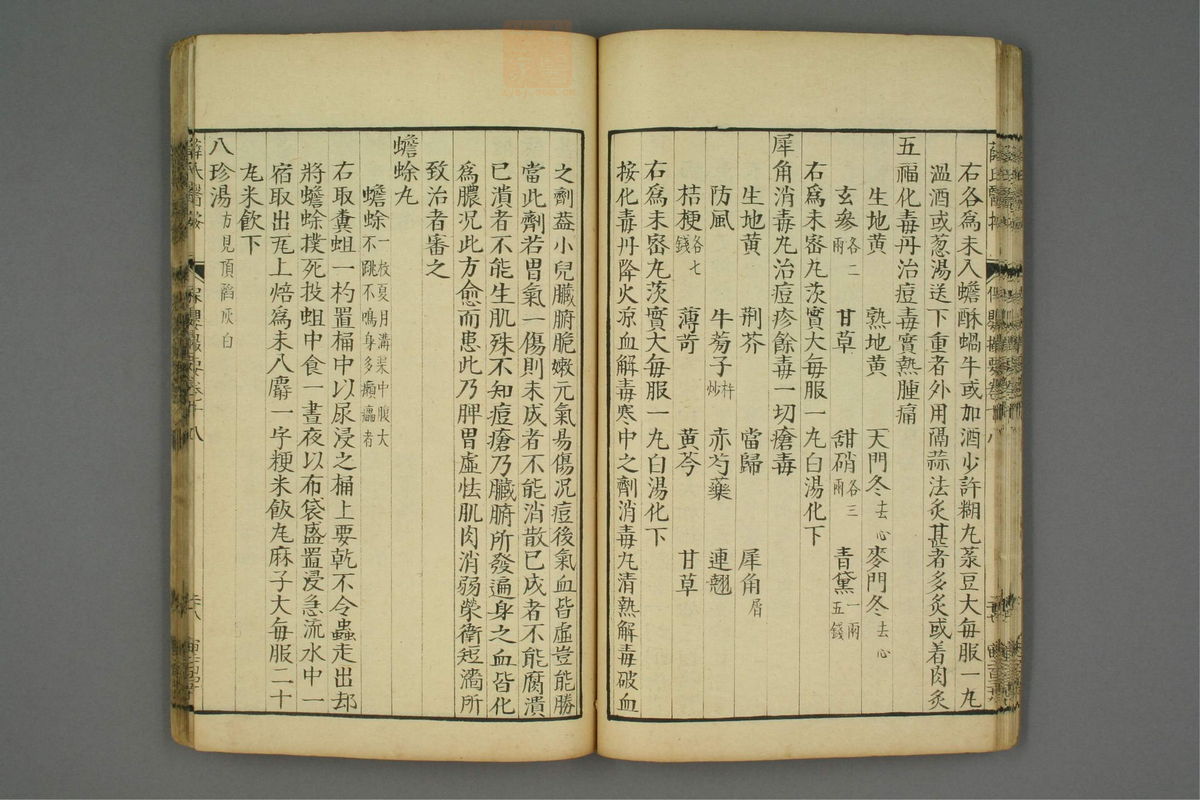 右各爲末入蟾酥蝸牛或加酒少許糊丸菉豆大每服一丸
溫酒或葱湯送下重者外用隔蒜法灸甚者多灸或着肉灸
五福化毒丹治痘毒實熱腫痛
生地黃 熟地黃 天門冬去心 麥門冬去心
玄參各二兩 甘草 甜硝各三兩 青黛一兩五錢
右爲末蜜丸茨實大每服一丸白湯化下
犀角消毒丸治痘疹餘毒一切瘡毒
生地黃 荆芥 當歸 犀角屑
防風 牛蒡子杵炒 赤芍藥 連翹
桔梗各七錢 薄苛 黃芩 甘草
右爲末密丸茨實大每服一丸白湯化下
按化毒丹降火凉血解毒寒中之劑消毒丸清熱解毒破血
之劑葢小兒臟腑脆嫩元氣易傷况痘後氣血皆虛豈能勝
當此劑若胃氣一傷則未成者不能消散已成者不能腐潰
已潰者不能生肌殊不知痘瘡乃臟腑所發遍身之血皆化
爲膿况此方愈而患此乃脾胃虛怯肌肉消弱榮衛短濇所
致治者審之
蟾蜍丸
蟾蜍一枚夏月溝渠中腹大不跳不鳴身多癩癗者
右取糞蛆一杓置桶中以尿浸之桶上要乾不令蟲走出却
將蟾蜍撲死投蛆中食一晝夜以布袋盛置浸急流水中一
宿取出瓦上焙爲末入麝一字粳米飯丸麻子大每服二十
丸米飲下
八珍湯方見頂䧟灰白